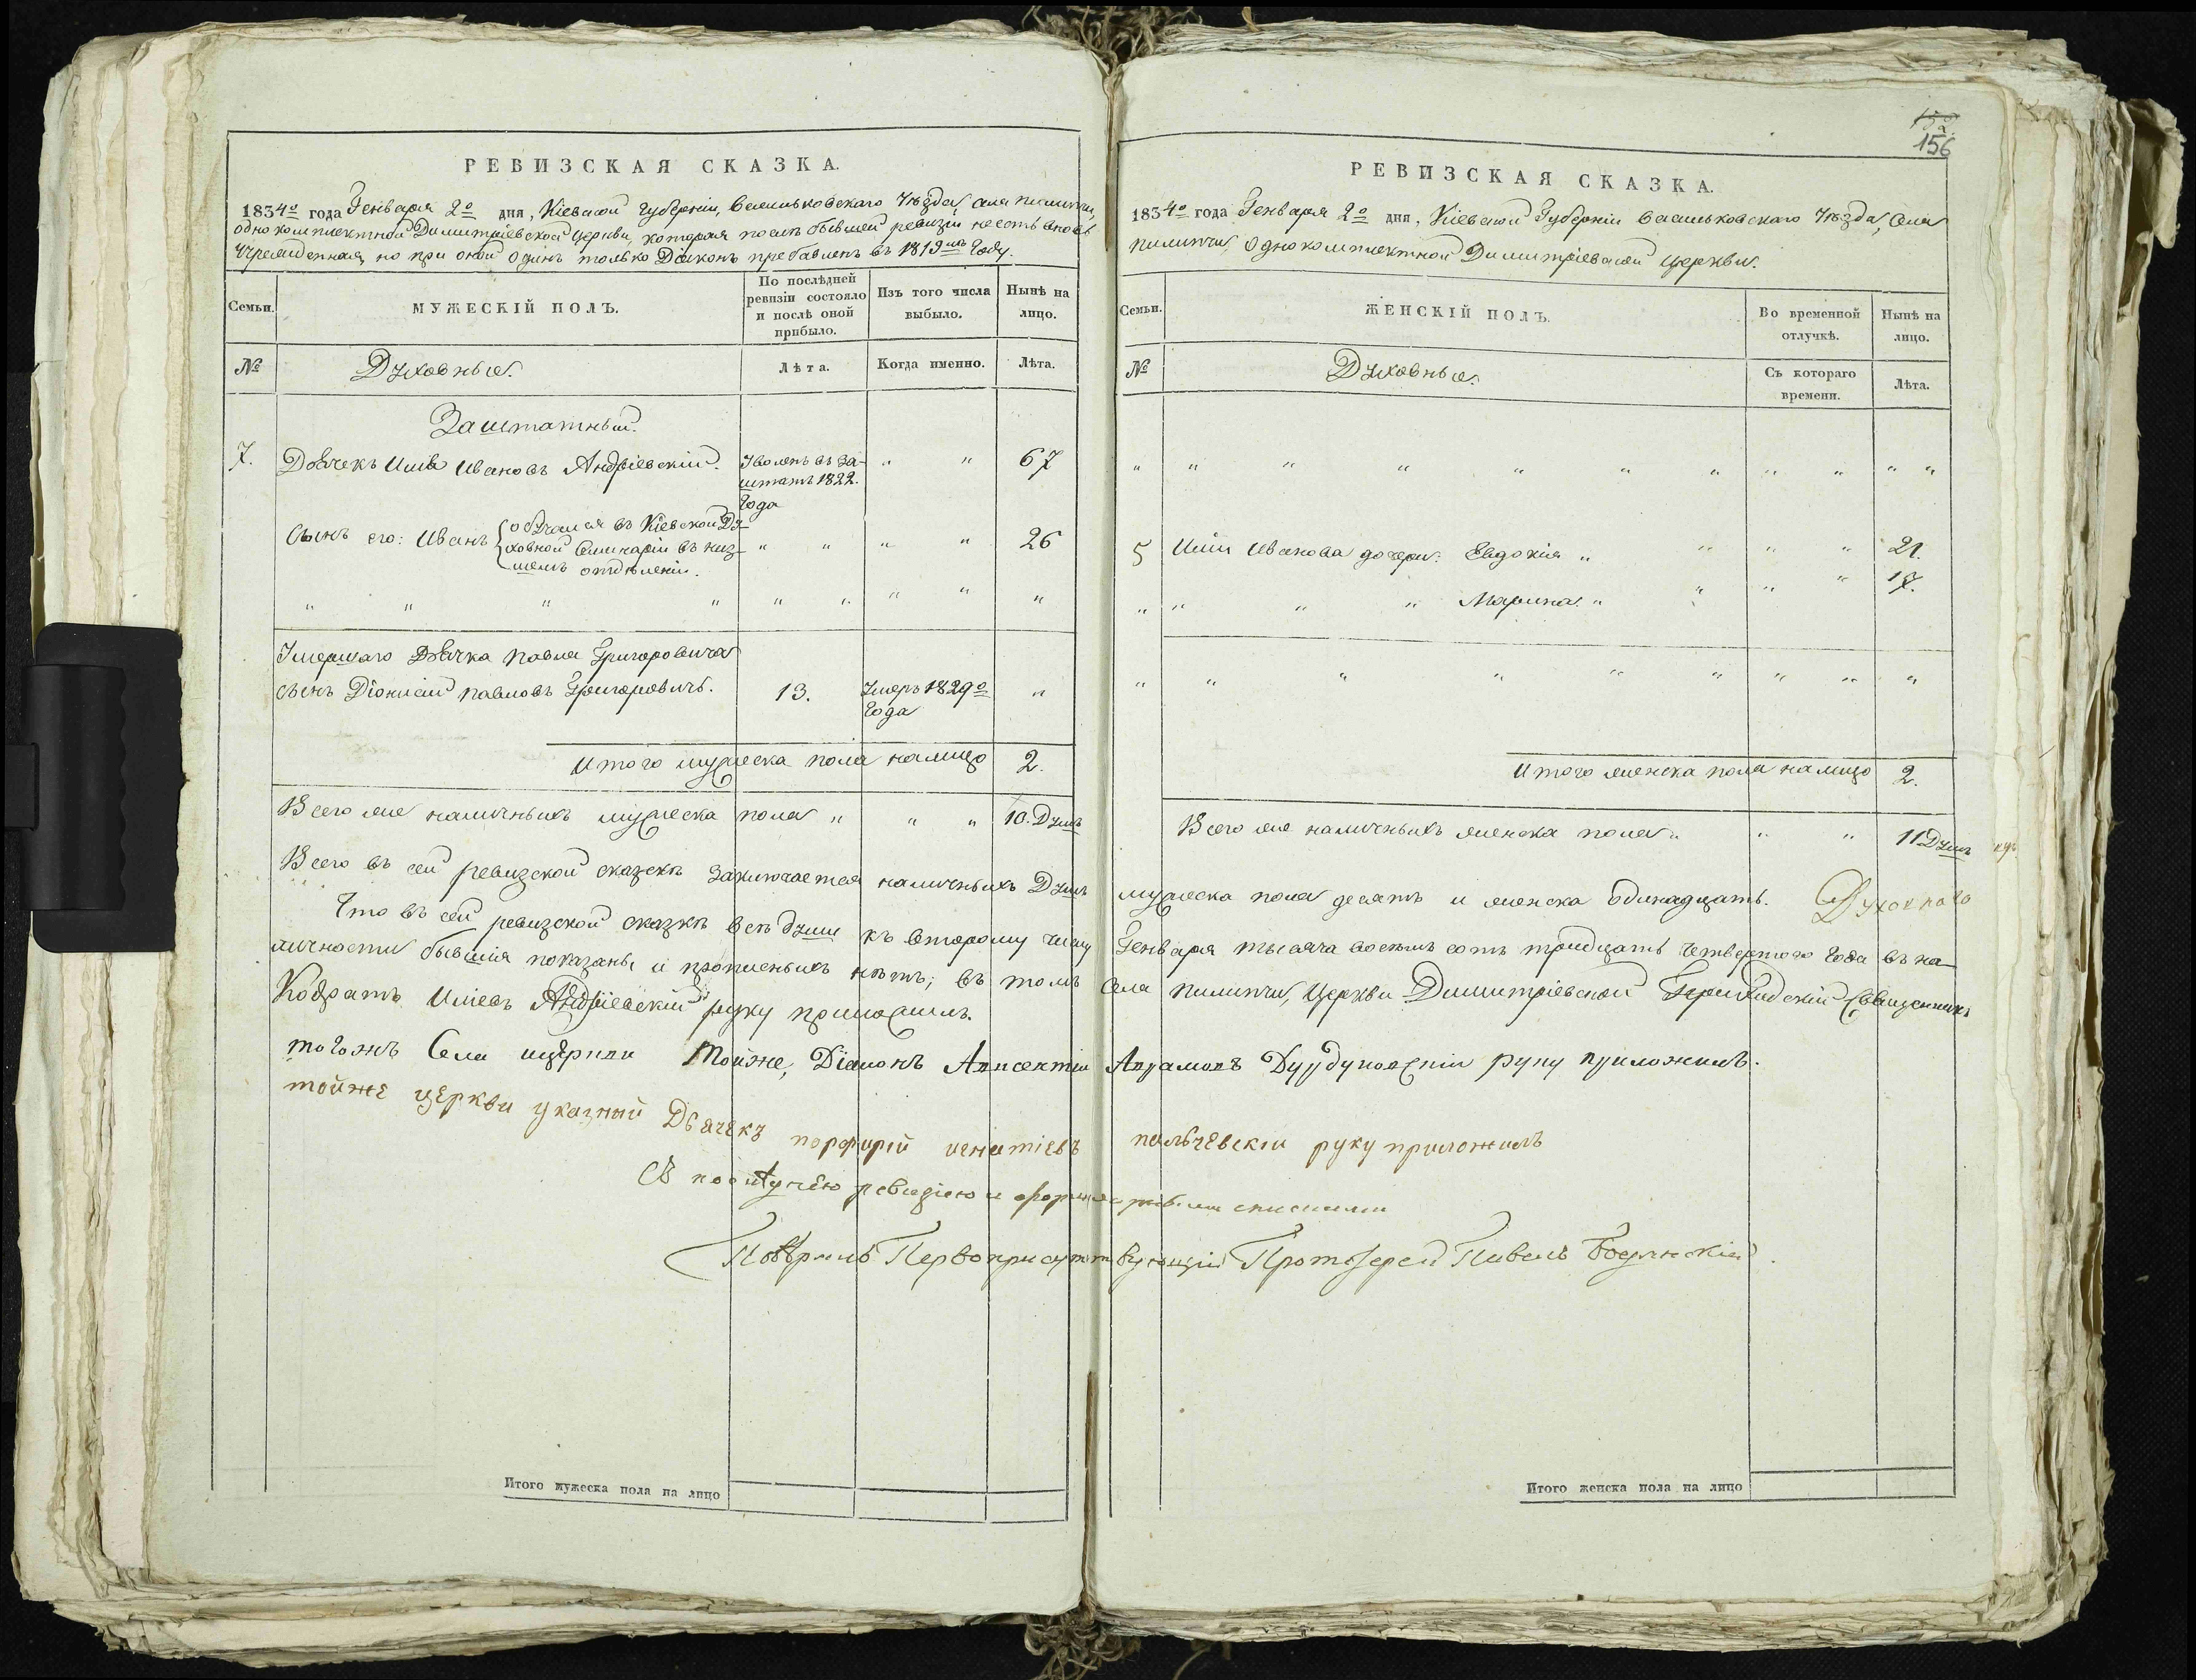 РЕВИЗСКАЯ СКАЗКА.
1834го года Генваря 2го дня, Кіевской Губерніи, Васильковскаго Уѣзда села Пилипчи,
однокомплектной Димитріевской Церкви, которая послѣ бывшей ревизіи не есть вновь
Учрежденная, но при оной Одинъ только Діаконъ прибавленъ въ 1819мъ Году.
Семьи.
МУЖЕСКІЙ ПОЛЪ.
По послѣдней ревизіи состояло и послѣ оной прибыло.
Изъ того числа выбыло.
Нынѣ на лицо.
№
Духовные.
Лѣта.
Когда именно.
Лѣта.
Заштатный.
7. Дьячекъ Илія Ивановъ Андріевскій. Уволенъ въ за- " " 67
штатъ 1822.
Года
Сынъ его: Иванъ обучался въ Кіевской Ду-
ховной Семинаріи въ низ- " " " " 26
шемъ отдѣленіи.
" " " " " " " " "
Умершаго Дьячка Павла Григоровича
сынъ Діонисій Павловъ Григоровичъ. 13. Умеръ 1829го "
Года
Итого мужеска пола налицо 2.
Всего же наличныхъ мужеска пола " " " 10. Душъ
156
РЕВИЗСКАЯ СКАЗКА.
1834го года Генваря 2го дня, Кіевской Губерніи Васильковскаго Уѣзда, Села
Пилипчи, Однокомплектной Димитріевской Церкви.
Семьи.
ЖЕНСКІЙ ПОЛЪ.
Во временной отлучкѣ.
Нынѣ на лицо.
№
Духовные.
Съ котораго времени.
Лѣта.
" " " " " " " " " " "
5 Иліи Иванова дочери: Евдокія " " " " 21.
" " " " Марина. " " " " 17.
" " " " " " " " "
Итого женска пола налицо 2.
Всего же наличныхъ женска пола " " " 11 Душъ
Всего въ сей ревизской сказкѣ заключается наличныхъ Душъ мужеска пола десять и женска Одинадцать.
Что въ сей ревизской сказкѣ всѣ души къ второму числу Генваря тысяча восемь сотъ тридцать четвертого Года въ на-
личности бывшія показаны и прописныхъ нѣтъ; въ томъ Села Пилипчи, Церкви Димитріевской Священникъ
Кодратъ Иліевъ Андріевскій руку приложилъ.
тогожъ Села церкви тойже, Діаконъ Авксентій Аврамовъ руку приложилъ.
тойже церкви указный Дьячекъ порфирій игнатіевъ пальчевскій руку приложилъ
Съ ревизіею и списками
Повѣрилъ Первоприсутствующій Протоіерей Павелъ
Итого мужеска пола на лицо
Итого женска пола на лицо